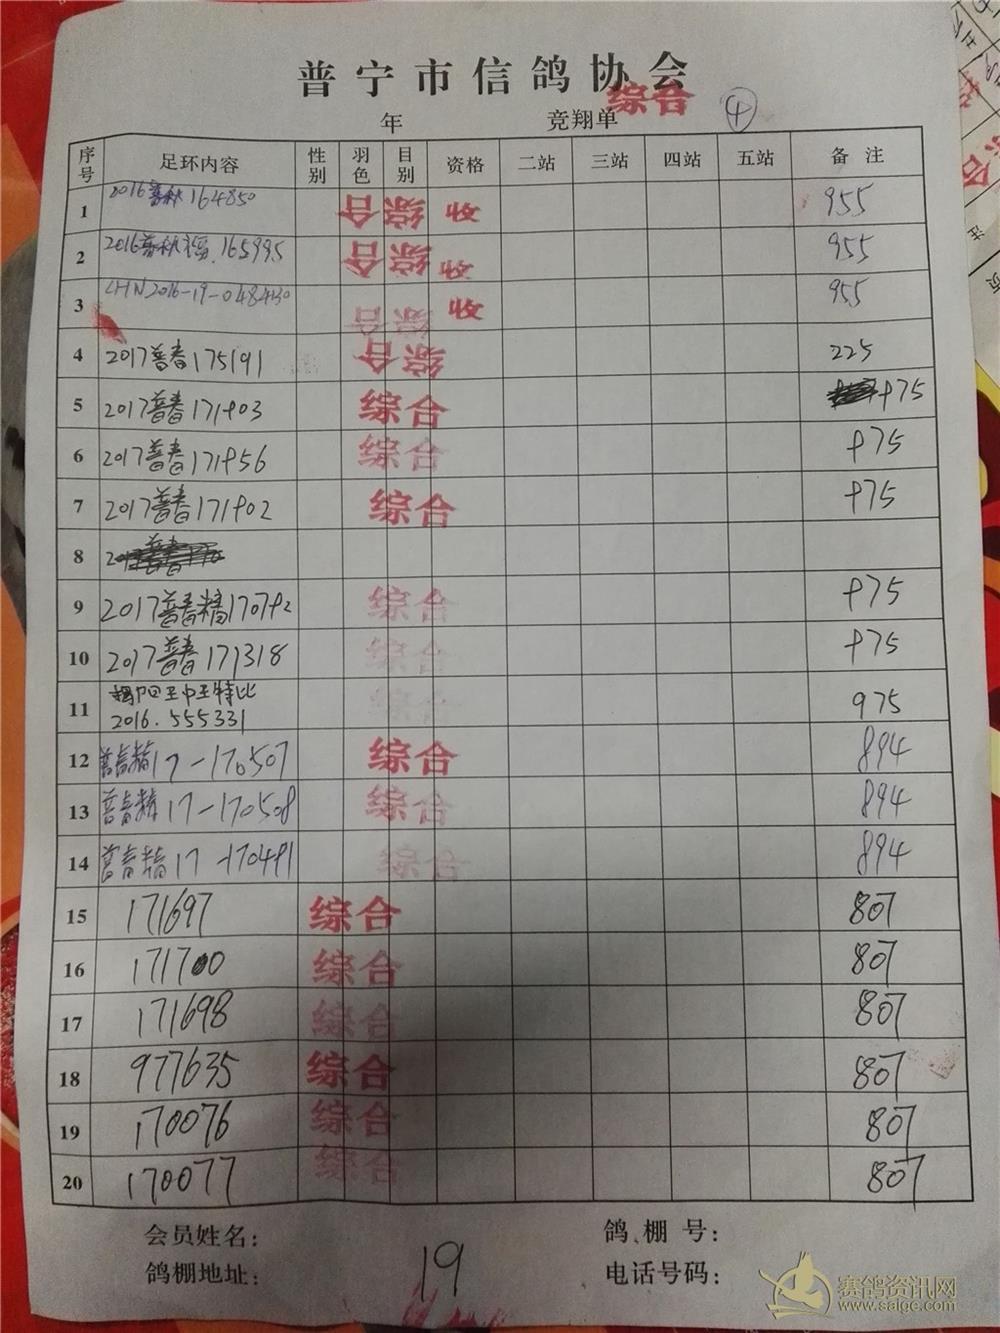 普宁市信鸽协会
综合
年 竞翔单 4
序号 足环内容 性别 羽色 目别 资格 二站 三站 四站 五站 备注
1 2016普秋164850 综合 收 955
2 2016普秋 165995 综合 收 955
3 CHN2016-19-0484130 综合 收 955
4 2017普春175191 综合 225
5 2017普春171903 综合 975
6 2017普春171956 综合 975
7 2017普春171902 综合 975
8
9 2017普春精170792 综合 975
10 2017普春171318 综合 975
11 揭阳王中王特比
2016.555331 综合 975
12 普春精17-170507 综合 894
13 普春精17-170508 综合 894
14 普春精17-170491 综合 894
15 171697 综合 807
16 171700 综合 807
17 171698 综合 807
18 977635 综合 807
19 170076 综合 807
20 170077 综合 807
会员姓名: 鸽棚号:
鸽棚地址: 19 电话号码:
赛鸽资讯网
www.saige.com